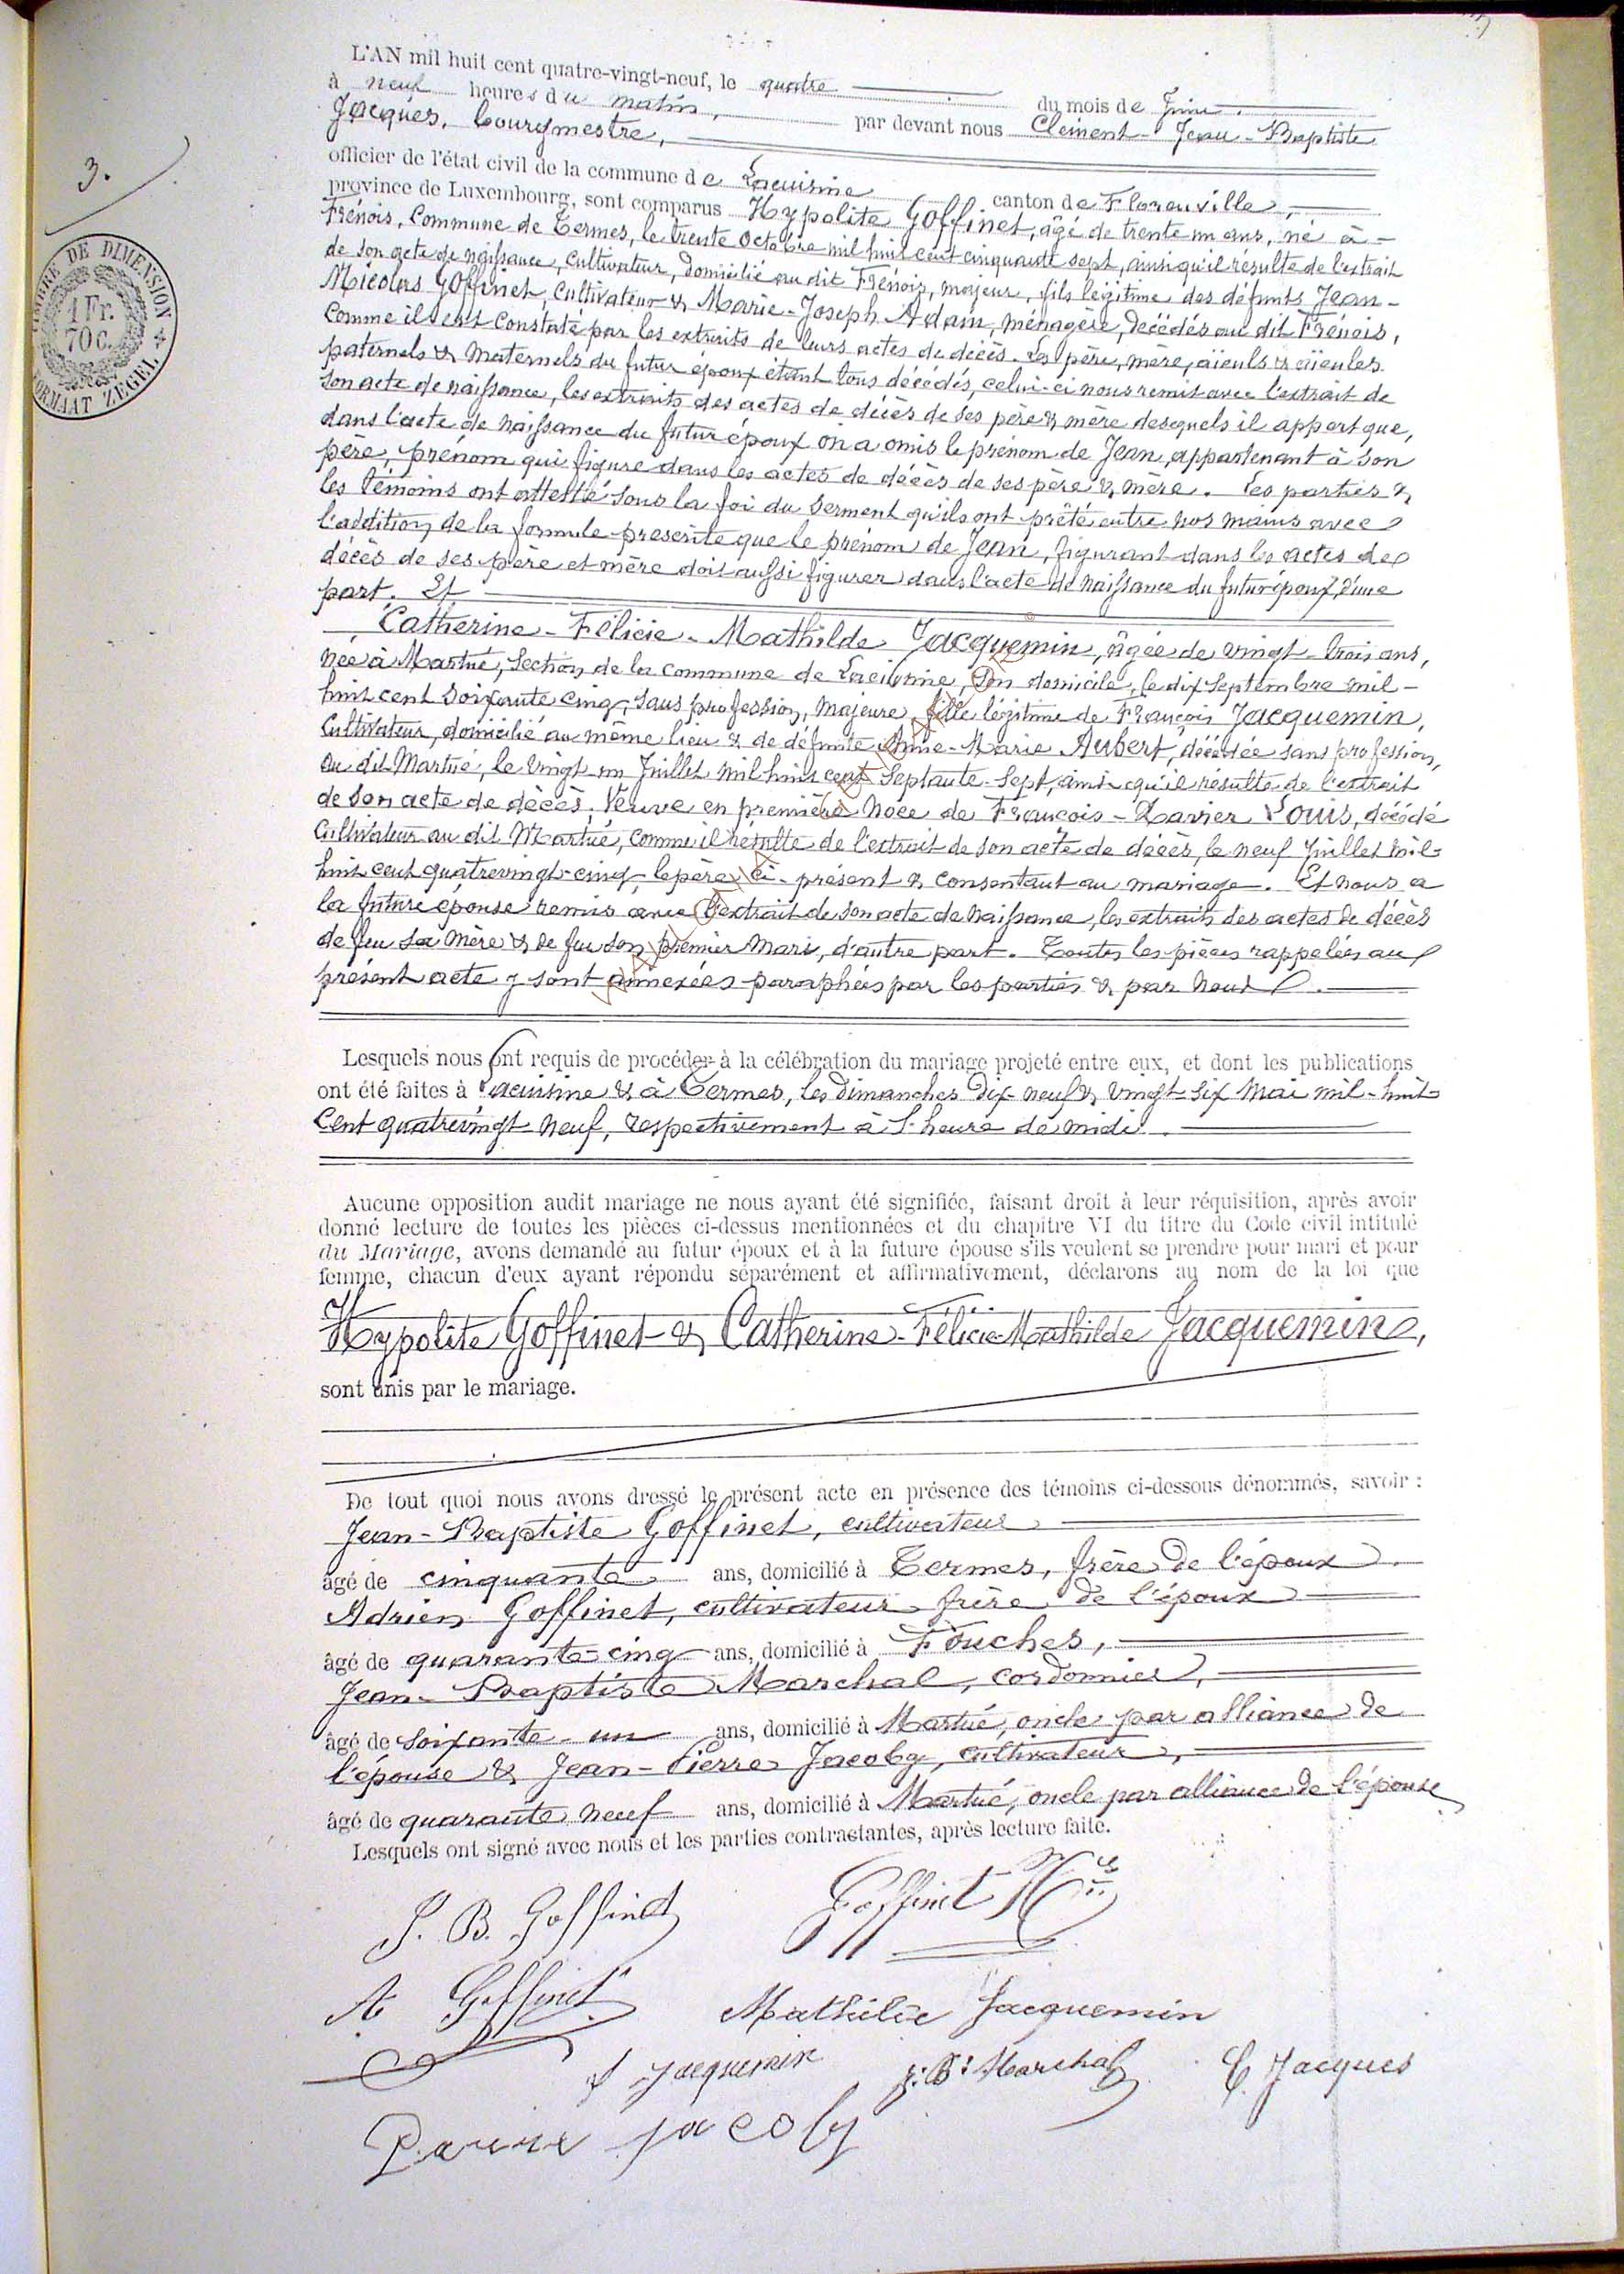 3.
TIMBRE DE DIMENSION
1 Fr.
70 C.
FORMAAT ZEGEL
L'AN mil huit cent quatre-vingt-neuf, le quatre du mois de Juin.
à neuf heures du matin, par devant nous Clément-Jean-Baptiste
Jacques, bourgmestre,
officier de l'état civil de la commune de Lacuisine canton de Florenville,
province de Luxembourg, sont comparus Hypolite Goffinet, âgé de trente un ans, né à -
Frénois, Commune de Termes, le trente Octobre mil huit cent cinquante sept, ainsi qu'il résulte de l'extrait
de son acte de naissance, cultivateur, domicilié au dit Frénois, majeur, fils légitime des défunts Jean-
Nicolas Goffinet, Cultivateur & Marie-Joseph Adam, ménagère, décédés au dit Frénois,
Comme il est constaté par les extraits de leurs actes de décès. Les père, mère, aïeuls & aïeules
paternels & maternels du futur époux étant tous décédés, celui-ci nous remis avec l'extrait de
son acte de naissance, les extraits des actes de décès de ses père & mère desquels il appert que,
dans l'acte de naissance du futur époux on a omis le prénom de Jean, appartenant à son
père, prénom qui figure dans les actes de décès de ses père & mère. Les parties &
les témoins ont attesté sous la foi du serment qu'ils ont prêté entre nos mains avec
l'addition de la formule prescrite que le prénom de Jean, figurant dans les actes de
décès de ses père et mère doit aussi figurer dans l'acte de naissance du futur époux, d'une
part. Et
Catherine-Félicie-Mathilde Jacquemin, âgée de vingt-trois ans,
née à Martué, Section de la commune de Lacuisine, son domicile, le dix Septembre mil-
huit cent soixante cinq, sans profession, majeure, fille légitime de François Jacquemin,
Cultivateur, domicilié au même lieu & de défunte Anne-Marie Aubert, décédée sans profession,
au dit Martué, le vingt un Juillet mil huit cent septante-sept, ainsi qu'il résulte de l'extrait
de son acte de décès; Veuve en première noce de François-Xavier Louis, décédé
Cultivateur au dit Martué, comme il résulte de l'extrait de son acte de décès, le neuf Juillet mil-
huit cent quatrevingt-cinq, le père ci-présent & consentant au mariage. Et nous a
la future épouse remis avec l'extrait de son acte de naissance, les extraits des actes de décès
de feu sa mère & de feu son premier mari, d'autre part. Toutes les pièces rappelées au
présent acte y sont annexées paraphées par les parties & par nous.
Lesquels nous ont requis de procéder à la célébration du mariage projeté entre eux, et dont les publications
ont été faites à Lacuisine & à Termes, les Dimanches Dix-neuf & vingt-six Mai mil-huit-
Cent quatrevingt-neuf, respectivement à l'heure de midi.
Aucune opposition audit mariage ne nous ayant été signifiée, faisant droit à leur réquisition, après avoir
donné lecture de toutes les pièces ci-dessus mentionnées et du chapitre VI du titre du Code civil intitulé
du Mariage, avons demandé au futur époux et à la future épouse s'ils veulent se prendre pour mari et pour
femme, chacun d'eux ayant répondu séparément et affirmativement, déclarons au nom de la loi que
Hypolite Goffinet & Catherine-Félicie-Mathilde Jacquemin,
sont unis par le mariage.
De tout quoi nous avons dressé le présent acte en présence des témoins ci-dessous dénommés, savoir :
Jean-Baptiste Goffinet, cultivateur
âgé de cinquante ans, domicilié à Termes, frère de l'époux
Adrien Goffinet, cultivateur frère de l'époux
âgé de quarante-cinq ans, domicilié à Fouches,
Jean-Baptiste Marchal, cordonnier,
âgé de soixante-un ans, domicilié à Martué, oncle par alliance de
l'épouse & Jean-Pierre Jacoby, cultivateur,
âgé de quarante neuf ans, domicilié à Martué, oncle par alliance de l'épouse
Lesquels ont signé avec nous et les parties contractantes, après lecture faite.
J. B. Goffinet Goffinet H
A Goffinet Mathilde Jacquemin
F Jacquemin J. Bte Marchal C. Jacques
Pierre jacoby